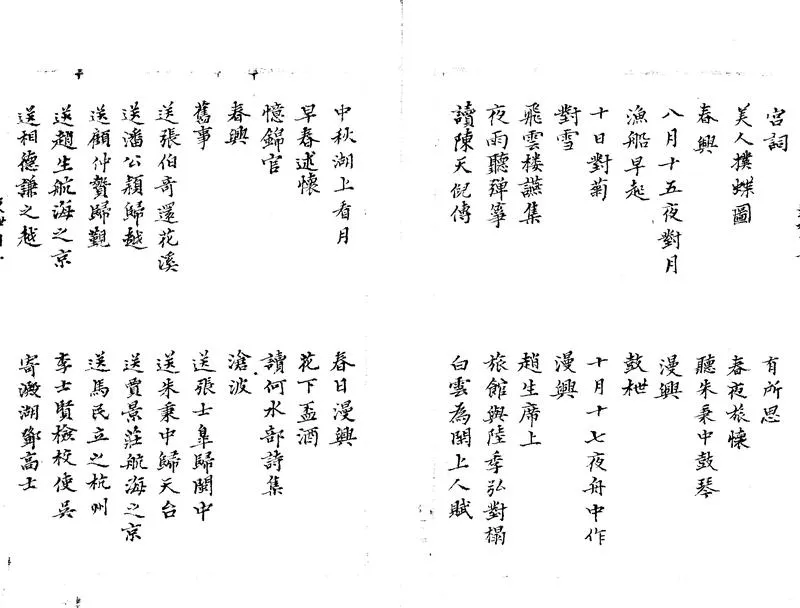 宮詞
有所思
美人撲蝶圖
春夜旅懷
春興
聽朱秉中鼓琴
八月十五夜對月
漫興
漁船早起
鼓枻
十日對菊
十月十七夜舟中作
對雪
漫興
飛雲楼讌集
趙生席上
夜雨聽彈箏
旅館與陸季弘對榻
讀陳天倪傳
白雲為閑上人賦
中秋湖上看月
春日漫興
早春述懷
花下盃酒
憶錦官
讀何水部詩集
春興
滄波
舊事
送張士皐歸閩中
送張伯哥還花溪
送朱秉中歸天台
送潘公穎歸越
送賈景莊航海之京
送顧仲贄歸覲
送馬民立之杭州
送趙生航海之京
李士賢檢校使吳
送相德謙之越
寄澱湖鄧高士